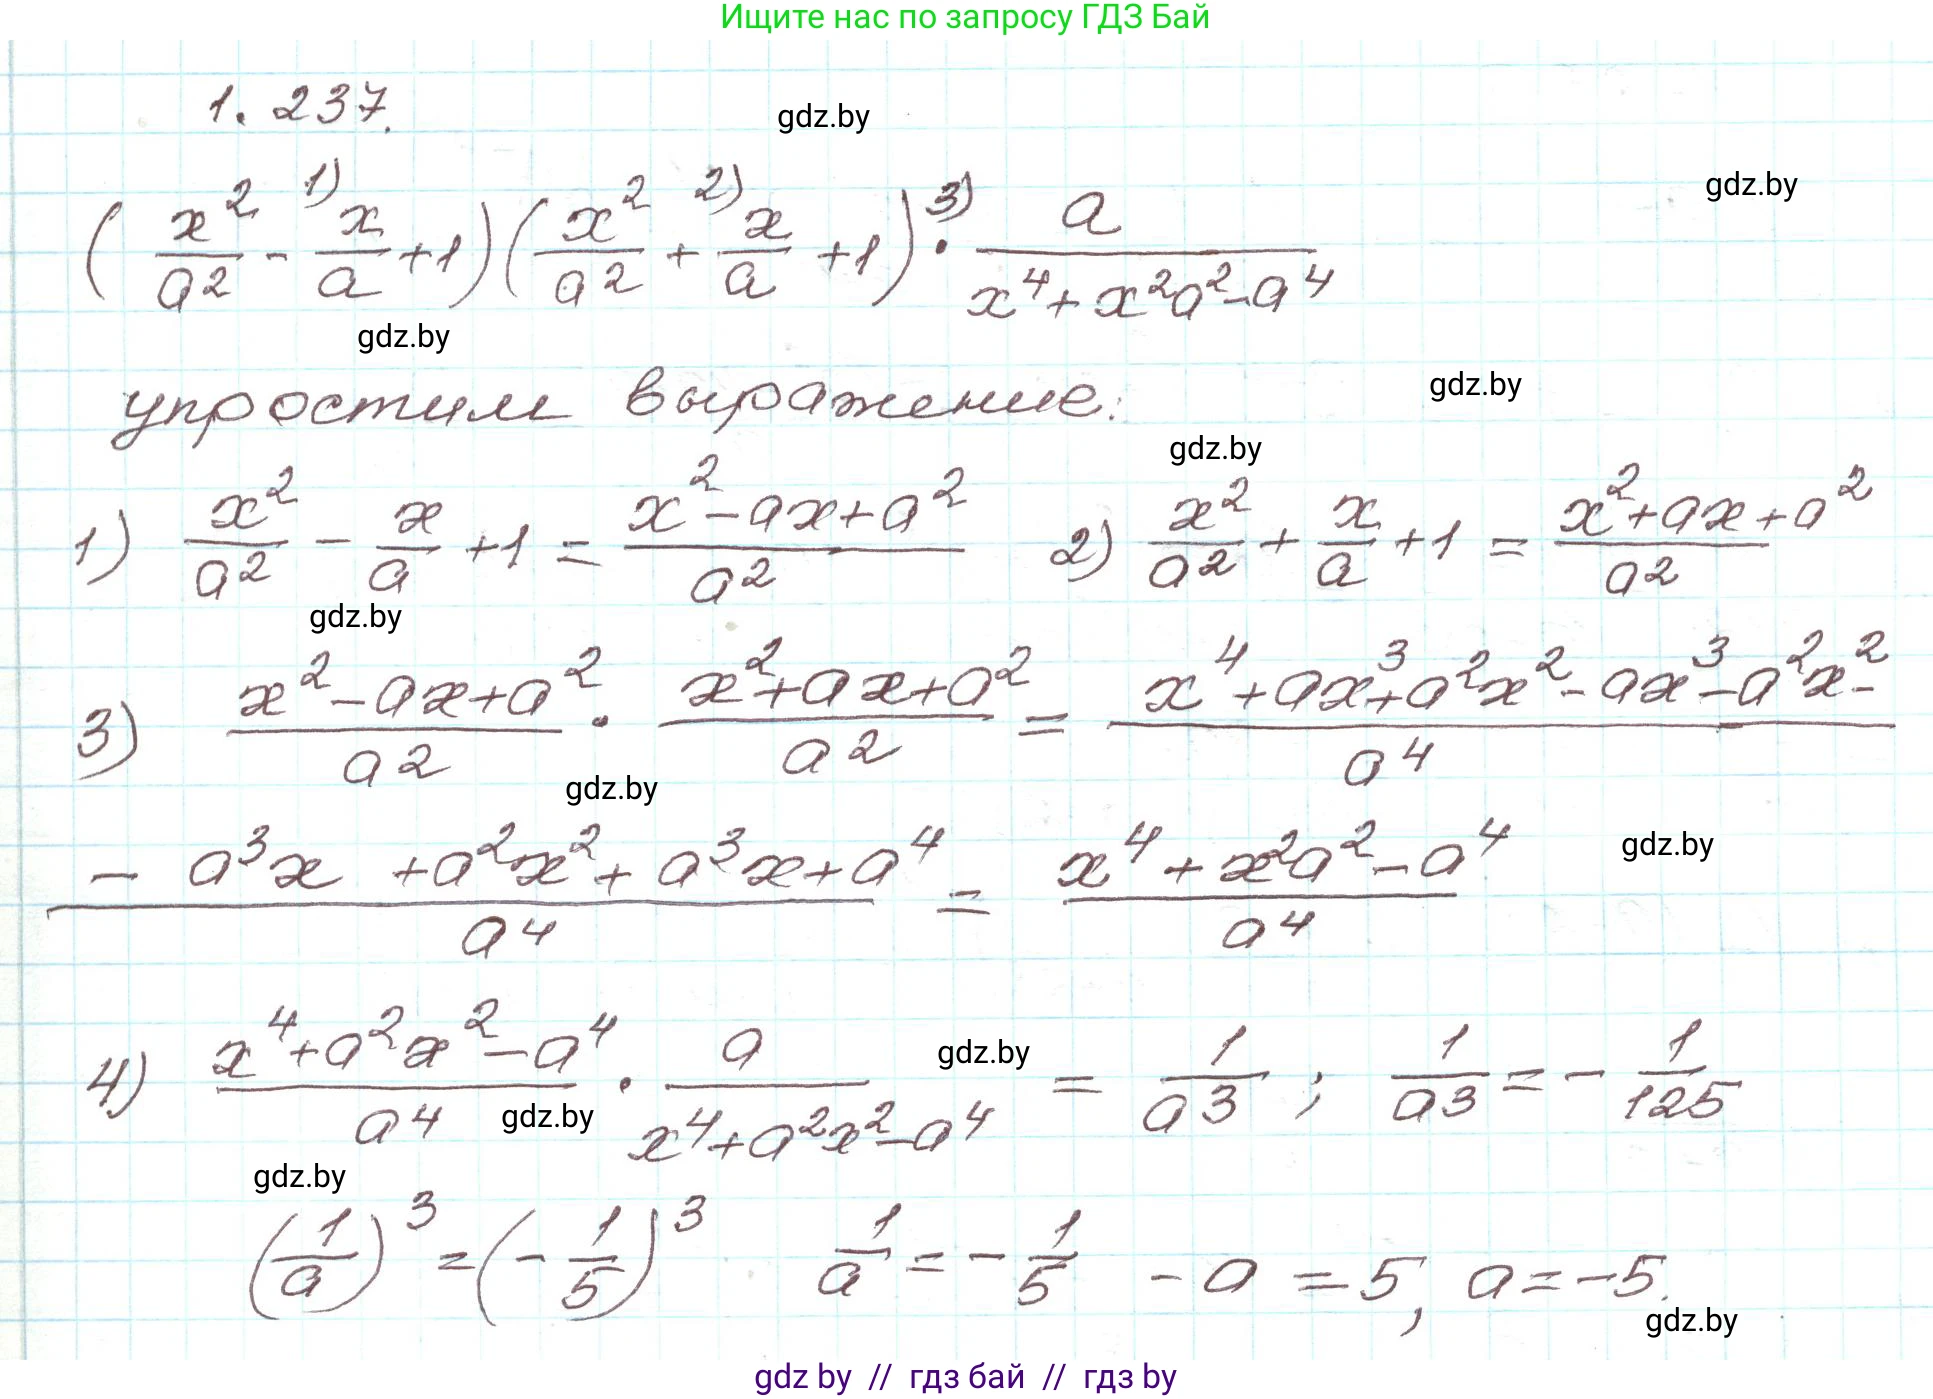 Ищите нас по запросу ГДЗ Бай
1.237.
gdz.by
gdz.by
(x²/a² - x/a + 1)(x²/a² + x/a + 1) · a/(x⁴ + x²a² - a⁴)
1) 2) 3)
gdz.by
упростим выражение:
gdz.by
gdz.by
1) x²/a² - x/a + 1 = (x² - ax + a²)/a² 2) x²/a² + x/a + 1 = (x² + ax + a²)/a²
gdz.by
3) (x² - ax + a²)/a² · (x² + ax + a²)/a² = (x⁴ + ax³ + a²x² - ax³ - a²x² -)/a⁴
gdz.by
(- a³x + a²x² + a³x + a⁴)/a⁴ = (x⁴ + x²a² - a⁴)/a⁴
gdz.by
4) (x⁴ + a²x² - a⁴)/a⁴ · a/(x⁴ + a²x² - a⁴) = 1/a³; 1/a³ = - 1/125
gdz.by
gdz.by
gdz.by
(1/a)³ = (- 1/5)³ 1/a = - 1/5 - a = 5, a = -5.
gdz.by
gdz by // гдз бай // гдз by